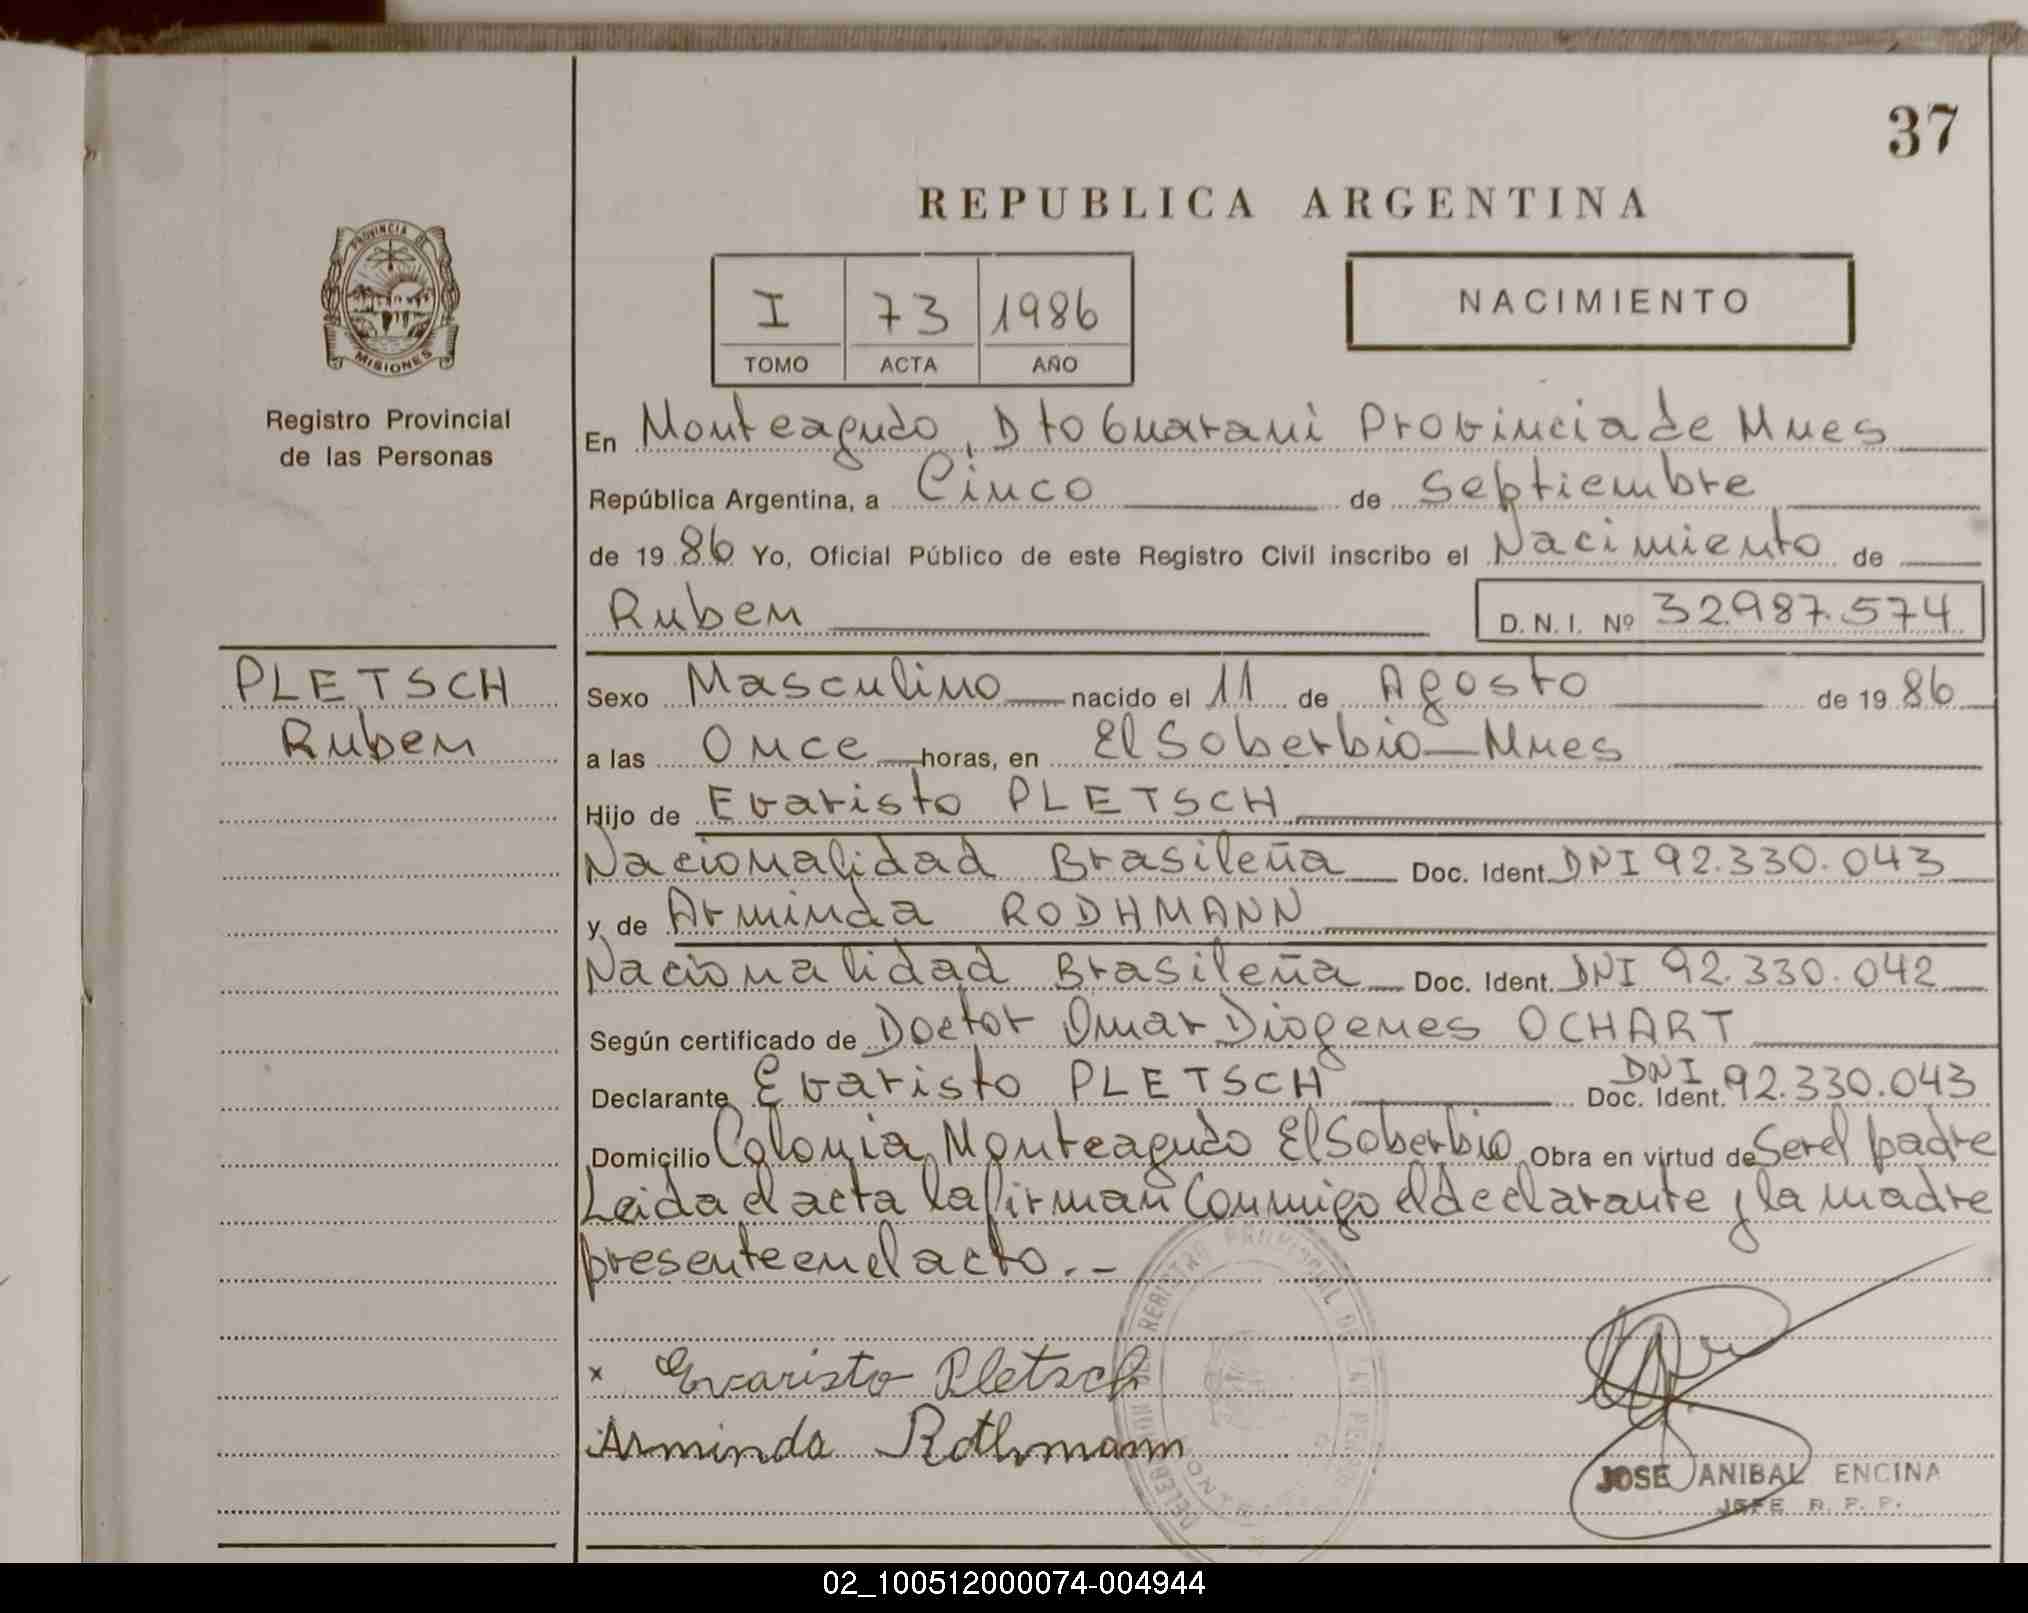 37
REPUBLICA ARGENTINA
PROVINCIA DE
MISIONES
Registro Provincial
de las Personas
I 73 1986
TOMO ACTA AÑO
NACIMIENTO
En Monteagudo, Dto Guarani Provincia de Mnes
República Argentina, a Cinco de Septiembre
de 19 86 Yo, Oficial Público de este Registro Civil inscribo el Nacimiento de
Ruben D. N. I. Nº 32.987.574
PLETSCH
Ruben
Sexo Masculino nacido el 11 de Agosto de 19 86
a las Once horas, en El Soberbio - Mnes
Hijo de Evaristo PLETSCH
Nacionalidad Brasileña Doc. Ident. DNI 92.330.043
y de Arminda RODHMANN
Nacionalidad Brasileña Doc. Ident. DNI 92.330.042
Según certificado de Doctor Omar Diogenes OCHART
Declarante Evaristo PLETSCH Doc. Ident. DNI 92.330.043
Domicilio Colonia Monteagudo El Soberbio Obra en virtud de Ser el padre
Leida el acta la firman Conmigo el declarante y la madre
presente en el acto. -
x Evaristo Pletsch
Arminda Rothmann
JOSE ANIBAL ENCINA
JEFE R. P. P.
02_100512000074-004944